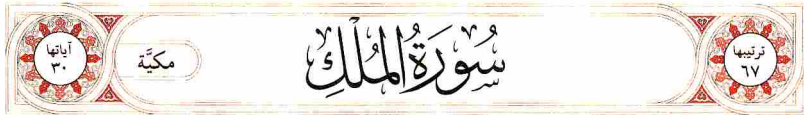 ترتيبها
٦٧
سُورَةُ المُلْكِ
مكيَّة
آياتها
٣٠